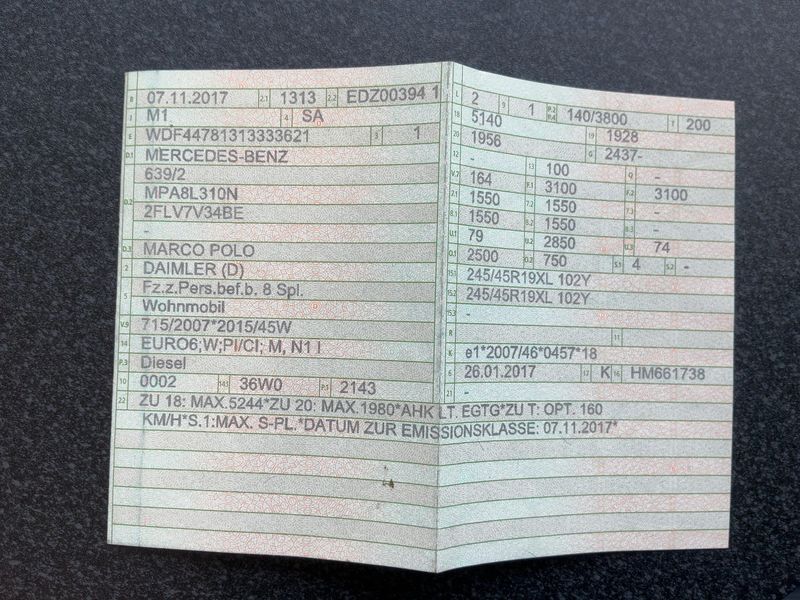 B 07.11.2017 2.1 1313 2.2 EDZ00394 1
J M1 4 SA
E WDF44781313333621 3 1
D.1 MERCEDES-BENZ
639/2
D.2 MPA8L310N
2FLV7V34BE
-
D.3 MARCO POLO
2 DAIMLER (D)
5 Fz.z.Pers.bef.b. 8 Spl.
Wohnmobil
V.9 715/2007*2015/45W
14 EURO6;W;PI/CI; M, N1 I
P.3 Diesel
10 0002 14.1 36W0 P.1 2143
L 2 9 1 P.2 P.4 140/3800 T 200
18 5140
20 1956 19 1928
G 2437-
12 - 13 100 Q -
V.7 164 F.1 3100 F.2 3100
7.1 1550 7.2 1550 7.3 -
8.1 1550 8.2 1550 8.3 -
U.1 79 U.2 2850 U.3 74
O.1 2500 O.2 750 S.1 4 S.2 -
15.1 245/45R19XL 102Y
15.2 245/45R19XL 102Y
15.3 -
R 11
K e1*2007/46*0457*18
6 26.01.2017 17 K 16 HM661738
21 -
22 ZU 18: MAX.5244*ZU 20: MAX.1980*AHK LT. EGTG*ZU T: OPT. 160
KM/H*S.1:MAX. S-PL.*DATUM ZUR EMISSIONSKLASSE: 07.11.2017*